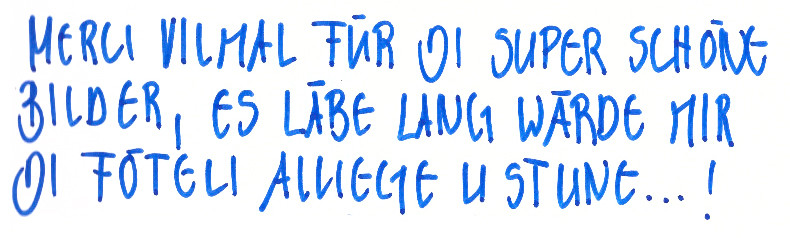 MERCI VILMAL FÜR DI SUPER SCHÖNE
BILDER, ES LÄBE LANG WÄRDE MIR
DI FÖTELI ALUEGE U STUNE...!